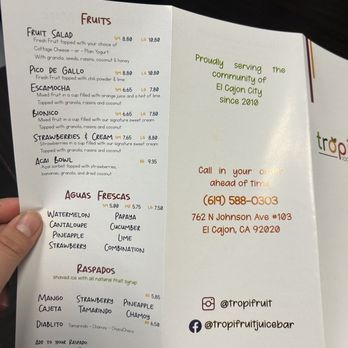 FRUITS
FRUIT SALAD SM 8.50 LG 10.50
Fresh fruit topped with your choice of
Cottage Cheese - or - Plain Yogurt
With granola, seeds, raisins, coconut & honey
PICO DE GALLO SM 8.50 LG 10.50
Fresh fruit topped with chili powder & lime
ESCAMOCHA SM 6.65 LG 7.80
Mixed fruit in a cup filled with orange juice and a hint of lime.
Topped with granola, raisins and coconut
BIONICO SM 6.65 LG 7.80
Mixed fruit in a cup filled with our signature sweet cream
Topped with granola, raisins and coconut
STRAWBERRIES & CREAM SM 7.65 LG 8.80
Strawberries in a cup filled with our signature sweet cream
Topped with granola, raisins and coconut
ACAI BOWL 9.35
Acai sorbet topped with strawberries,
bananas, granola, and dried coconut
AGUAS FRESCAS
SM 5.00 MD 5.75 LG 7.50
WATERMELON PAPAYA
CANTALOUPE CUCUMBER
PINEAPPLE LIME
STRAWBERRY COMBINATION
RASPADOS
shaved ice with all natural fruit syrup
MANGO STRAWBERRY PINEAPPLE
CAJETA TAMARINDO CHAMOY
DIABLITO Tamarindo - Chamoy -
ADD TO YOUR RASPADO
Proudly serving the
community of
El Cajon City
since 2010
Call in your order
ahead of time
(619) 588-0303
762 N Johnson Ave #103
El Cajon, CA 92020
@tropifruit
@tropifruitjuicebar
trop